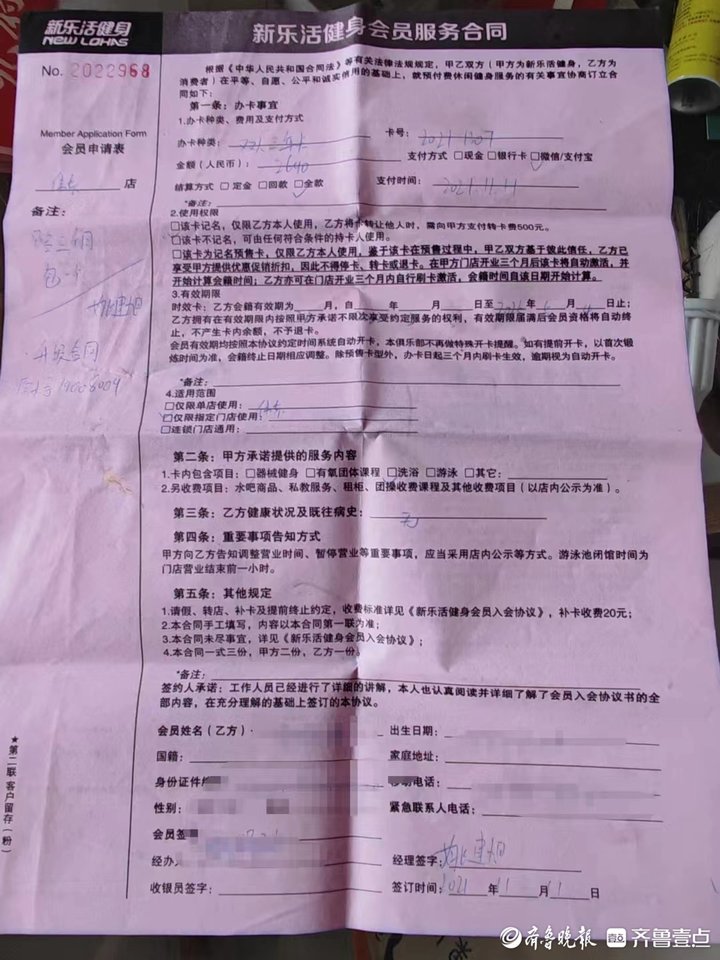 新乐活健身
NEW LOHAS
新乐活健身会员服务合同
No. 2022968
Member Application Form
会员申请表
店
备注:
升级合同
根据《中华人民共和国合同法》等有关法律法规规定,甲乙双方(甲方为新乐活健身,乙方为
消费者)在平等、自愿、公平和诚实信用的基础上,就预付费休闲健身服务的有关事宜协商订立合
同如下:
第一条:办卡事宜
1.办卡种类、费用及支付方式
办卡种类: 卡号:
金额(人民币): 2640 支付方式 □现金 □银行卡 □微信/支付宝
结算方式 □定金 □回款 □全款 支付时间: 2021.11.11
*备注:
2.使用权限
□该卡记名,仅限乙方本人使用,乙方将卡转让他人时,需向甲方支付转卡费500元。
□该卡不记名,可由任何符合条件的持卡人使用。
□该卡为记名预售卡,仅限乙方本人使用,鉴于该卡在预售过程中,甲乙双方基于彼此信任,乙方已
享受甲方提供优惠促销折扣,因此不得停卡、转卡或退卡。在甲方门店开业三个月后该卡将自动激活,并
开始计算会籍时间;乙方亦可在门店开业三个月内自行刷卡激活,会籍时间自该日期开始计算。
3.有效期限
时效卡:乙方会籍有效期为 月,自 年 月 日至 年 月 日止;
乙方拥有在有效期限内按照甲方承诺不限次享受约定服务的权利,有效期限届满后会员资格将自动终
止,不产生卡内余额,不予退卡。
会员有效期均按照本协议约定时间系统自动开卡,本俱乐部不再做特殊开卡提醒。如有提前开卡,以首次锻
炼时间为准,会籍终止日期相应调整。除预售卡型外,办卡日起三个月内刷卡生效,逾期视为自动开卡。
*备注:
4.适用范围
□仅限单店使用:
□仅限指定门店使用:
□连锁门店通用:
第二条:甲方承诺提供的服务内容
1.卡内包含项目:□器械健身 □有氧团体课程 □洗浴 □游泳 □其它:
2.另收费项目:水吧商品、私教服务、租柜、团操收费课程及其他收费项目(以店内公示为准)。
第三条:乙方健康状况及既往病史: 无
第四条:重要事项告知方式
甲方向乙方告知调整营业时间、暂停营业等重要事项,应当采用店内公示等方式。游泳池闭馆时间为
门店营业结束前一小时。
第五条:其他规定
1.请假、转店、补卡及提前终止约定,收费标准详见《新乐活健身会员入会协议》,补卡收费20元;
2.本合同手工填写,内容以本合同第一联为准;
3.本合同未尽事宜,详见《新乐活健身会员入会协议》;
4.本合同一式三份,甲方二份,乙方一份。
*备注:
签约人承诺:工作人员已经进行了详细的讲解,本人也认真阅读并详细了解了会员入会协议书的全
部内容,在充分理解的基础上签订的本协议。
会员姓名(乙方): 出生日期:
国籍: 家庭地址:
身份证件 电话:
性别: 紧急联系人电话:
会员签
经办 经理签字:
收银员签字: 签订时间: 2021 年 11 月 11 日
★第二联 客户留存(粉)
齐鲁晚报 齐鲁壹点